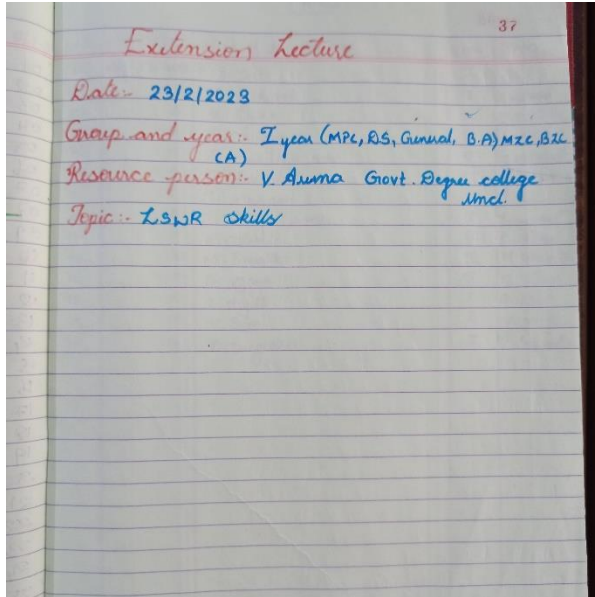 37
Exitension Lecture
Date:- 23/2/2023
Group and year:- I year (MPC, DS, General, B.A) MZC, BZC
(CA)
Resource person:- V. Aruna Govt. Degree college
Mncl.
Topic:- LSWR skills